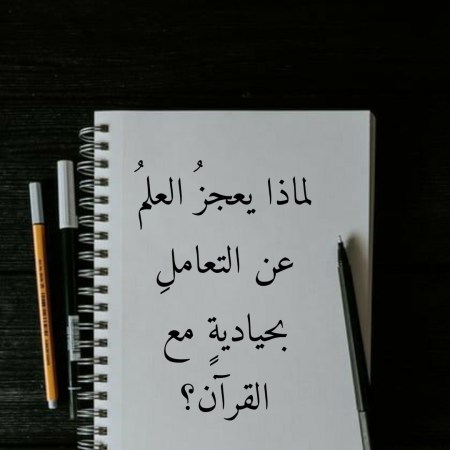 لماذا يعجزُ العلمُ
عن التعاملِ
بحياديةٍ مع
القرآن؟